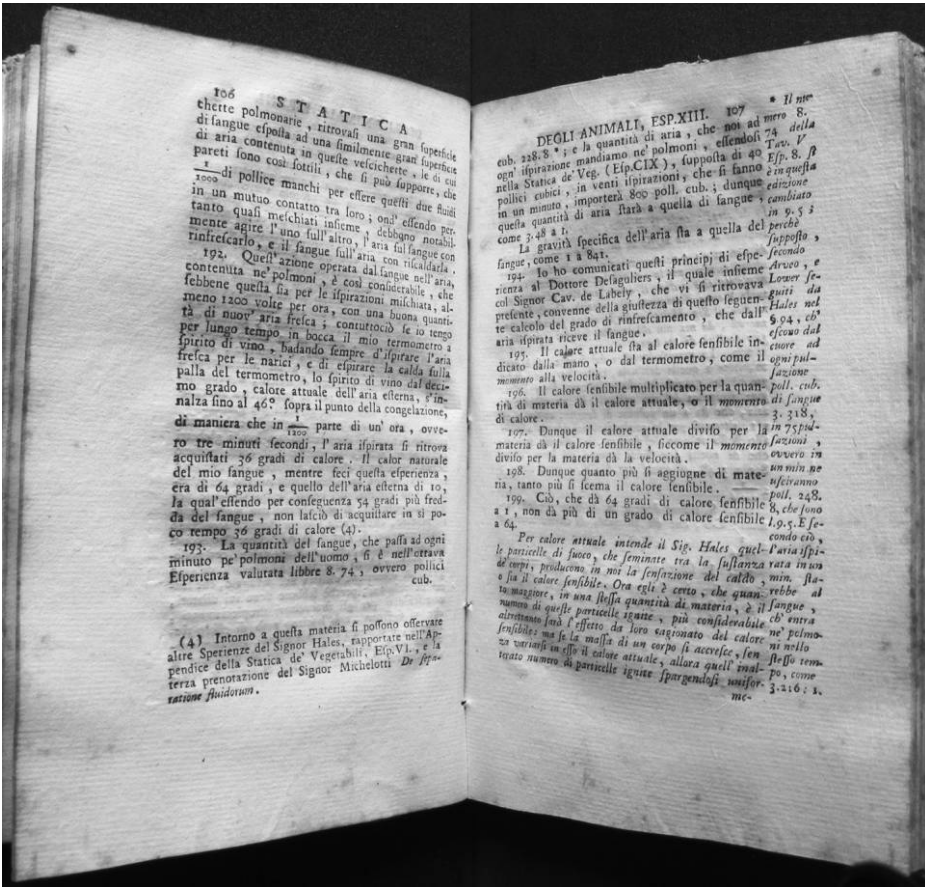 106 STATICA
chette polmonarie, ritrovaſi una gran ſuperficie
di ſangue eſpoſta ad una ſimilmente gran ſuperficie
di aria contenuta in queſte veſcichette, le di cui
pareti ſono così ſottili, che ſi può ſupporre, che
1/1000 di pollice manchi per eſſere queſti due fluidi
in un mutuo contatto tra loro; ond' eſſendo per-
tanto quaſi meſchiati inſieme, debbono notabil-
mente agire l'uno ſull'altro, l'aria ſul ſangue con
rinfreſcarlo, e il ſangue ſull'aria con riſcaldarla.
192. Queſt'azione operata dal ſangue nell'aria,
contenuta ne'polmoni, è così conſiderabile, che
ſebbene queſta ſia per le iſpirazioni miſchiata, al-
meno 1200 volte per ora, con una buona quanti-
tà di nuov' aria freſca; contuttociò ſe io tengo
per lungo tempo in bocca il mio termometro a
ſpirito di vino, badando ſempre d'iſpirare l'aria
freſca per le narici, e di eſpirare la calda ſulla
palla del termometro, lo ſpirito di vino dal deci-
mo grado, calore attuale dell'aria eſterna, s'in-
nalza fino al 46.° ſopra il punto della congelazione,
di maniera che in 1/1200 parte di un' ora, ovve-
ro tre minuti ſecondi, l'aria iſpirata ſi ritrova
acquiſtati 36 gradi di calore. Il calor naturale
del mio ſangue, mentre feci queſta eſperienza,
era di 64 gradi, e quello dell'aria eſterna di 10,
la qual'eſſendo per conſeguenza 54 gradi più fred-
da del ſangue, non laſciò di acquiſtare in sì po-
co tempo 36 gradi di calore (4).
193. La quantità del ſangue, che paſſa ad ogni
minuto pe'polmoni dell'uomo, ſi è nell'ottava
Eſperienza valutata libbre 8. 74, ovvero pollici
cub.
(4) Intorno a queſta materia ſi poſſono oſſervare
altre Sperienze del Signor Hales, rapportate nell'Ap-
pendice della Statica de' Vegetabili, Eſp.VI., e la
terza prenotazione del Signor Michelotti De ſepa-
ratione fluidorum.
DEGLI ANIMALI, ESP.XIII. 107
cub. 228.8 *; e la quantità di aria, che noi ad
ogn' iſpirazione mandiamo ne'polmoni, eſſendoſi
nella Statica de'Veg. (Eſp.CIX), ſuppoſta di 40
pollici cubici, in venti iſpirazioni, che ſi fanno
in un minuto, importerà 800 poll. cub.; dunque
queſta quantità di aria ſtarà a quella di ſangue,
come 3.48 a 1.
La gravità ſpecifica dell'aria ſta a quella del
ſangue, come 1 a 841.
194. Io ho comunicati queſti principj di eſpe-
rienza al Dottore Deſaguliers, il quale inſieme
col Signor Cav. de Labely, che vi ſi ritrovava
preſente, convenne della giuſtezza di queſto ſeguen-
te calcolo del grado di rinfreſcamento, che dall'
aria iſpirata riceve il ſangue.
195. Il calore attuale ſta al calore ſenſibile in-
dicato dalla mano, o dal termometro, come il
momento alla velocità.
196. Il calore ſenſibile multiplicato per la quan-
tità di materia dà il calore attuale, o il momento
di calore.
197. Dunque il calore attuale diviſo per la
materia dà il calore ſenſibile, ſiccome il momento
diviſo per la materia dà la velocità.
198. Dunque quanto più ſi aggiugne di mate-
ria, tanto più ſi ſcema il calore ſenſibile.
199. Ciò, che dà 64 gradi di calore ſenſibile
a 1, non dà più di un grado di calore ſenſibile
a 64.
Per calore attuale intende il Sig. Hales quel-
le particelle di fuoco, che ſeminate tra la ſuſtanza
de'corpi, producono in noi la ſenſazione del caldo,
o ſia il calore ſenſibile. Ora egli è certo, che quan-
to maggiore, in una ſteſſa quantità di materia, è il
numero di queſte particelle ignite, più conſiderabile
altrettanto ſarà l'effetto da loro cagionato del calore
ſenſibile; ma ſe la maſſa di un corpo ſi accreſce, ſen
za variarſi in eſſo il calore attuale, allora quell' inal-
terato numero di particelle ignite ſpargendoſi unifor-
me-
* Il nu-
mero 8.
74 della
Tav. V
Eſp. 8. ſt
è in queſta
edizione
cambiato
in 9. 5 ʒ
perchè
ſuppoſto,
ſecondo
Arveo, e
Lower ſe-
guiti da
Hales nel
§.94, ch'
eſcono dal
cuore ad
ogni pul-
ſazione
poll. cub.
di ſangue
3. 318,
in 75 pul-
ſazioni,
ovvero in
un min. ne
uſciranno
poll. 248.
8, che ſono
l.9.5. E ſe-
condo ciò,
l'aria iſpi-
rata in un
min. ſta-
rebbe al
ſangue,
ch' entra
ne' polmo-
ni nello
ſteſſo tem-
po, come
3.216: 1.